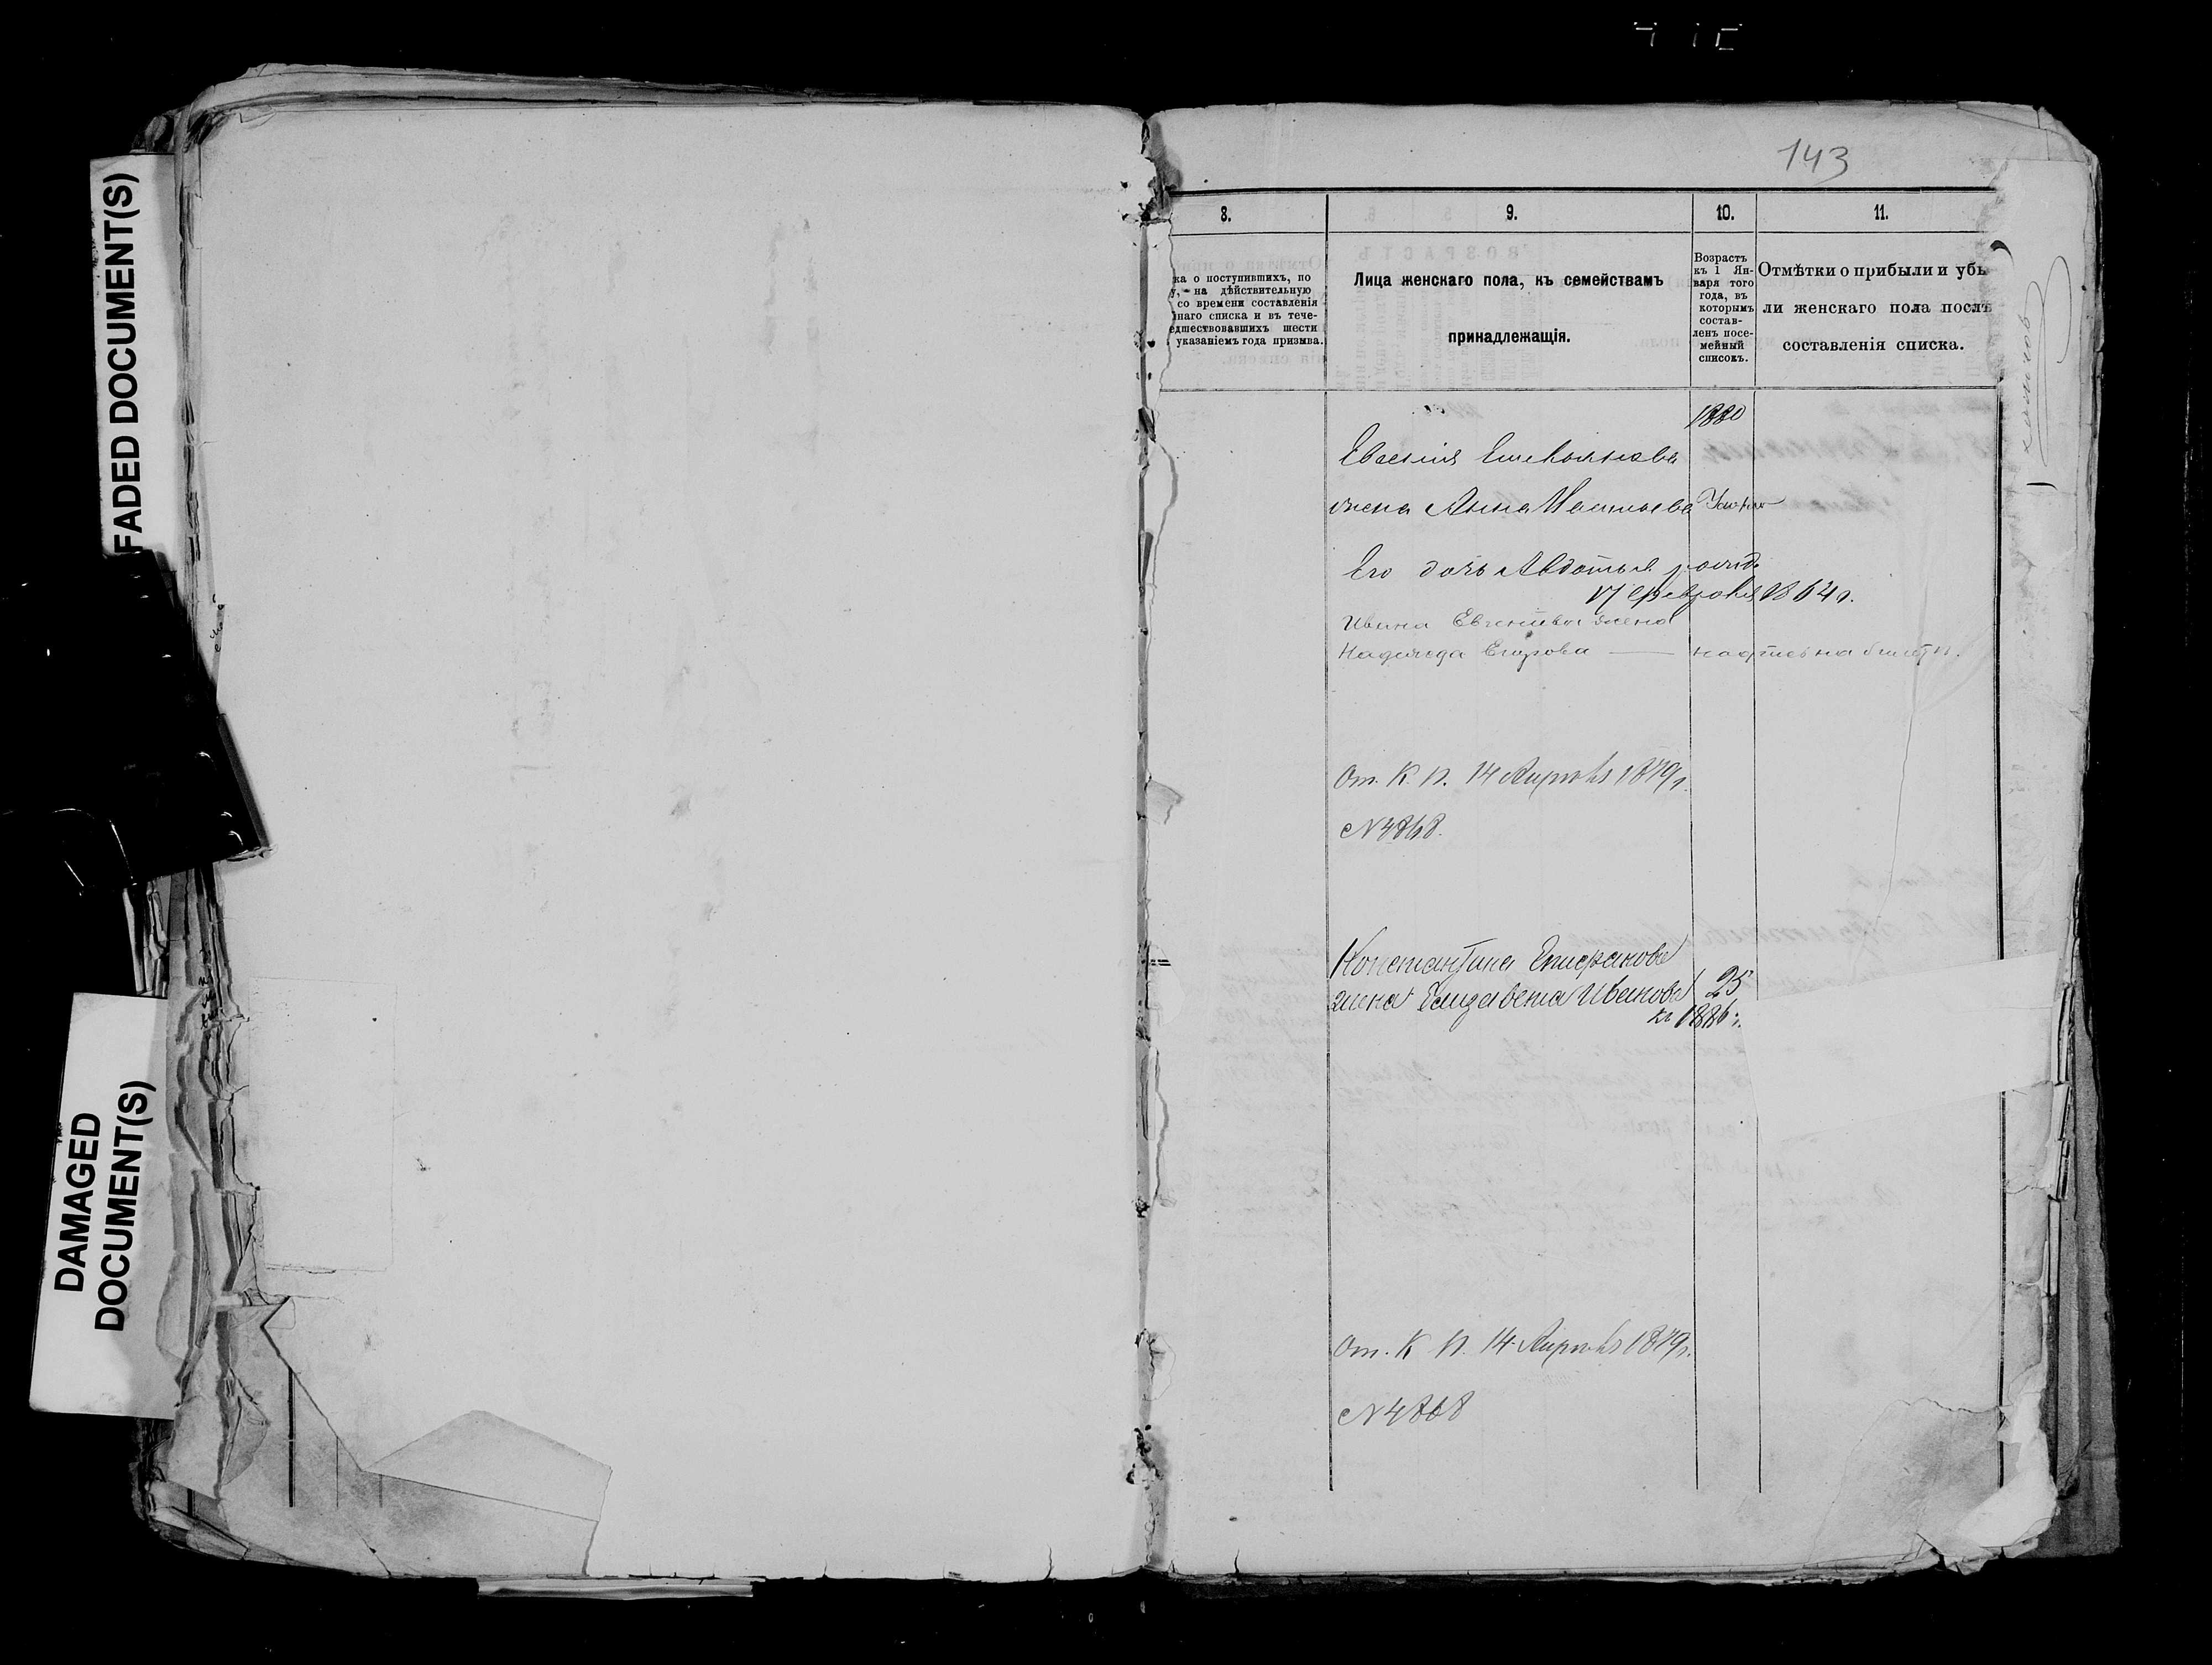 FADED DOCUMENT(S)
DAMAGED
DOCUMENT(S)
143
8.
9.
10.
11.
ка о поступившихъ, по
у, на дѣйствительную
со времени составленія
наго списка и въ тече-
едшествовавшихъ шести
указаніемъ года призыва.
Лица женскаго пола, къ семействамъ
принадлежащія.
Возрастъ
къ 1 Ян-
варя того
года, въ
которымъ
состав-
ленъ посе-
мейный
списокъ.
Отмѣтки о прибыли и убы
ли женскаго пола послѣ
составленія списка.
1880
жена Анна
Его дочь Авдотья рожд.
17 февраля 1864 г.
Ивана Евгеніева жена
Надежда Егорова — надпись на билетѣ.
От. К. П. 14 Апрѣля 1879 г.
№ 4868.
Константина Епифанова
жена Елизавета Иванова 25
къ 1886 г.
От. К П. 14 Апрѣля 1879 г.
№ 4868